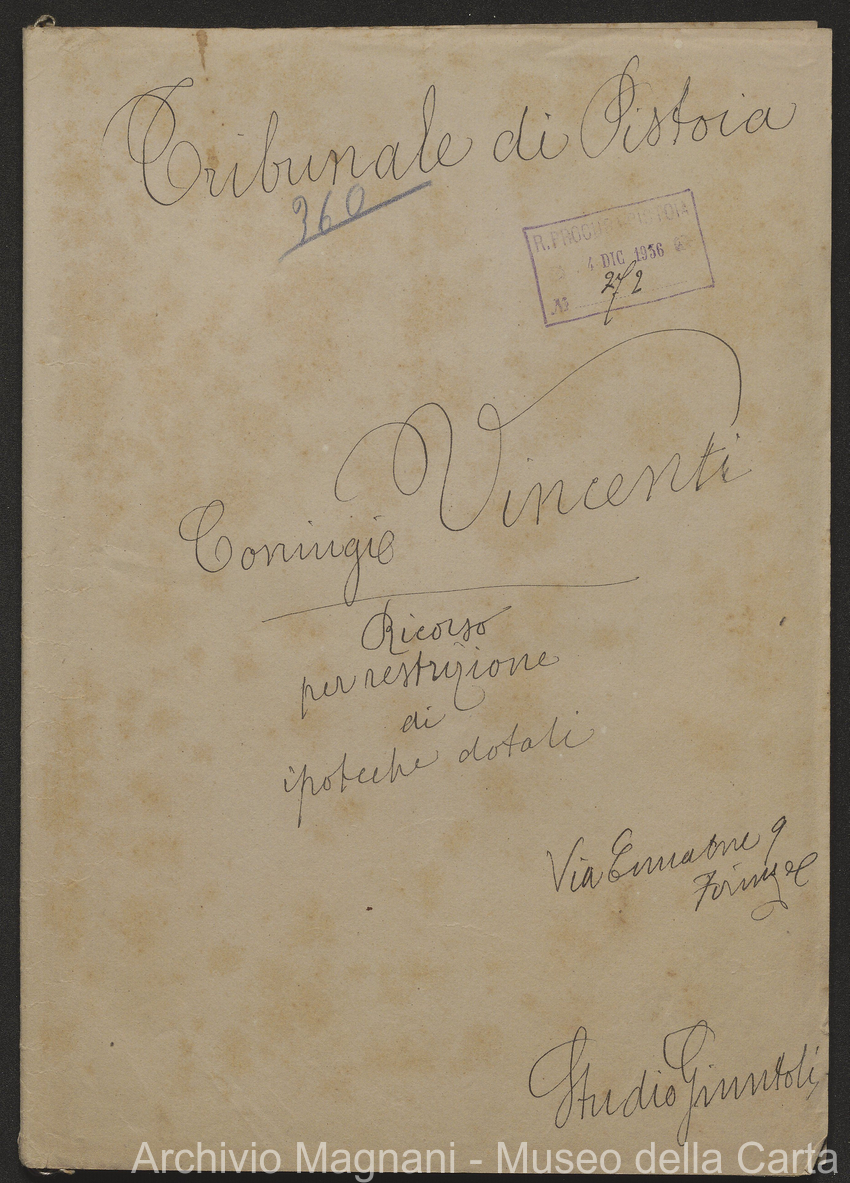 Tribunale di Pistoia
360
R. PROCURA PISTOIA
4 DIC 1936
N°
Coniugi Vincenti
Ricorso
per restrizione
di
ipoteche dotali
Via 9
Firenze
Studio Giuntoli
Archivio Magnani - Museo della Carta